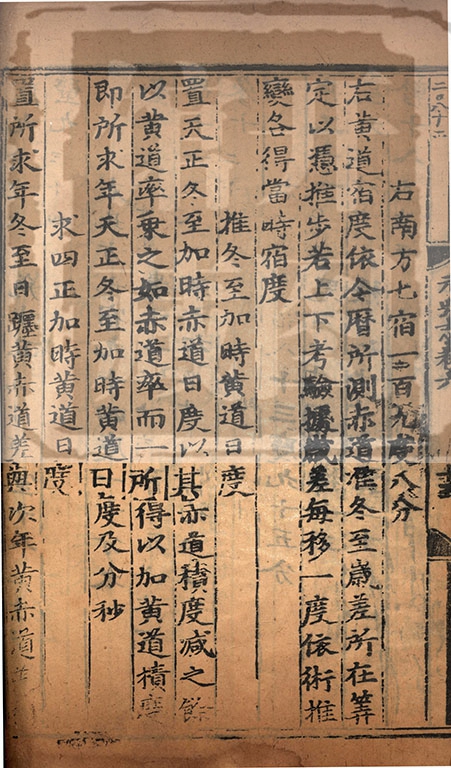 右南方七宿一百九度八分
右黄道宿度依今曆所測赤道准冬至歲差所在筭
定以憑推步若上下考驗據歲差每移一度依術推
變各得當時宿度
推冬至加時黄道日度
置天正冬至加時赤道日度以其赤道積度减之餘
以黄道率乗之如赤道率而一所得以加黄道積度
即所求年天正冬至加時黄道日度及分秒
求四正加時黄道日度
置所求年冬至日躔黄赤道差與次年黄赤道差